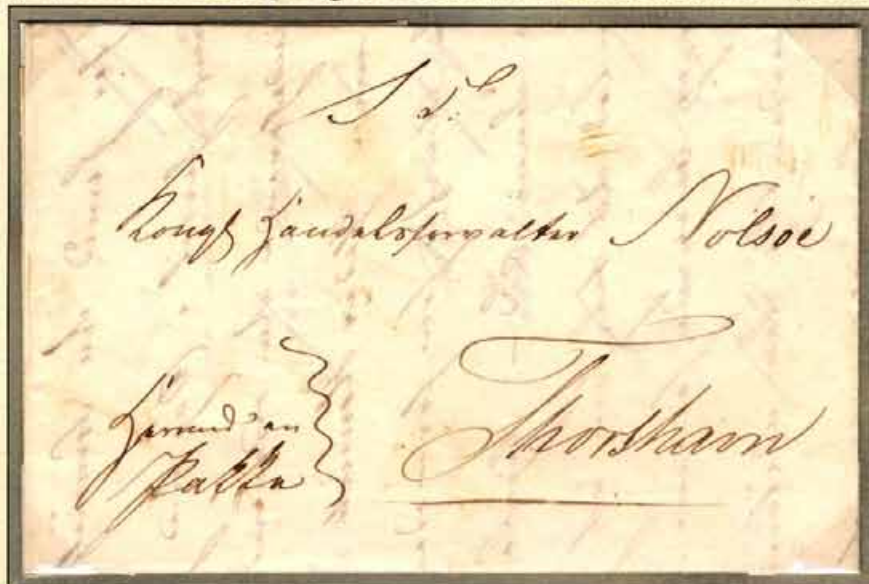 S. T.
Kongl Handelsforvalter Nolsøe
Thorshavn
Hermed en
Pakke